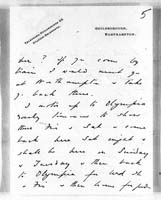 5
GUILSBOROUGH,
NORTHAMPTON.
her? If you come by
train I would meet you
at Northampton & take
you back there.
I motor up to Olympia
early tomorrow to show
there Fri & Sat & come
back here Sat night &
shall be here on Sunday
& Tuesday & then back
to Olympia for Wed Th
& Fri & then home for